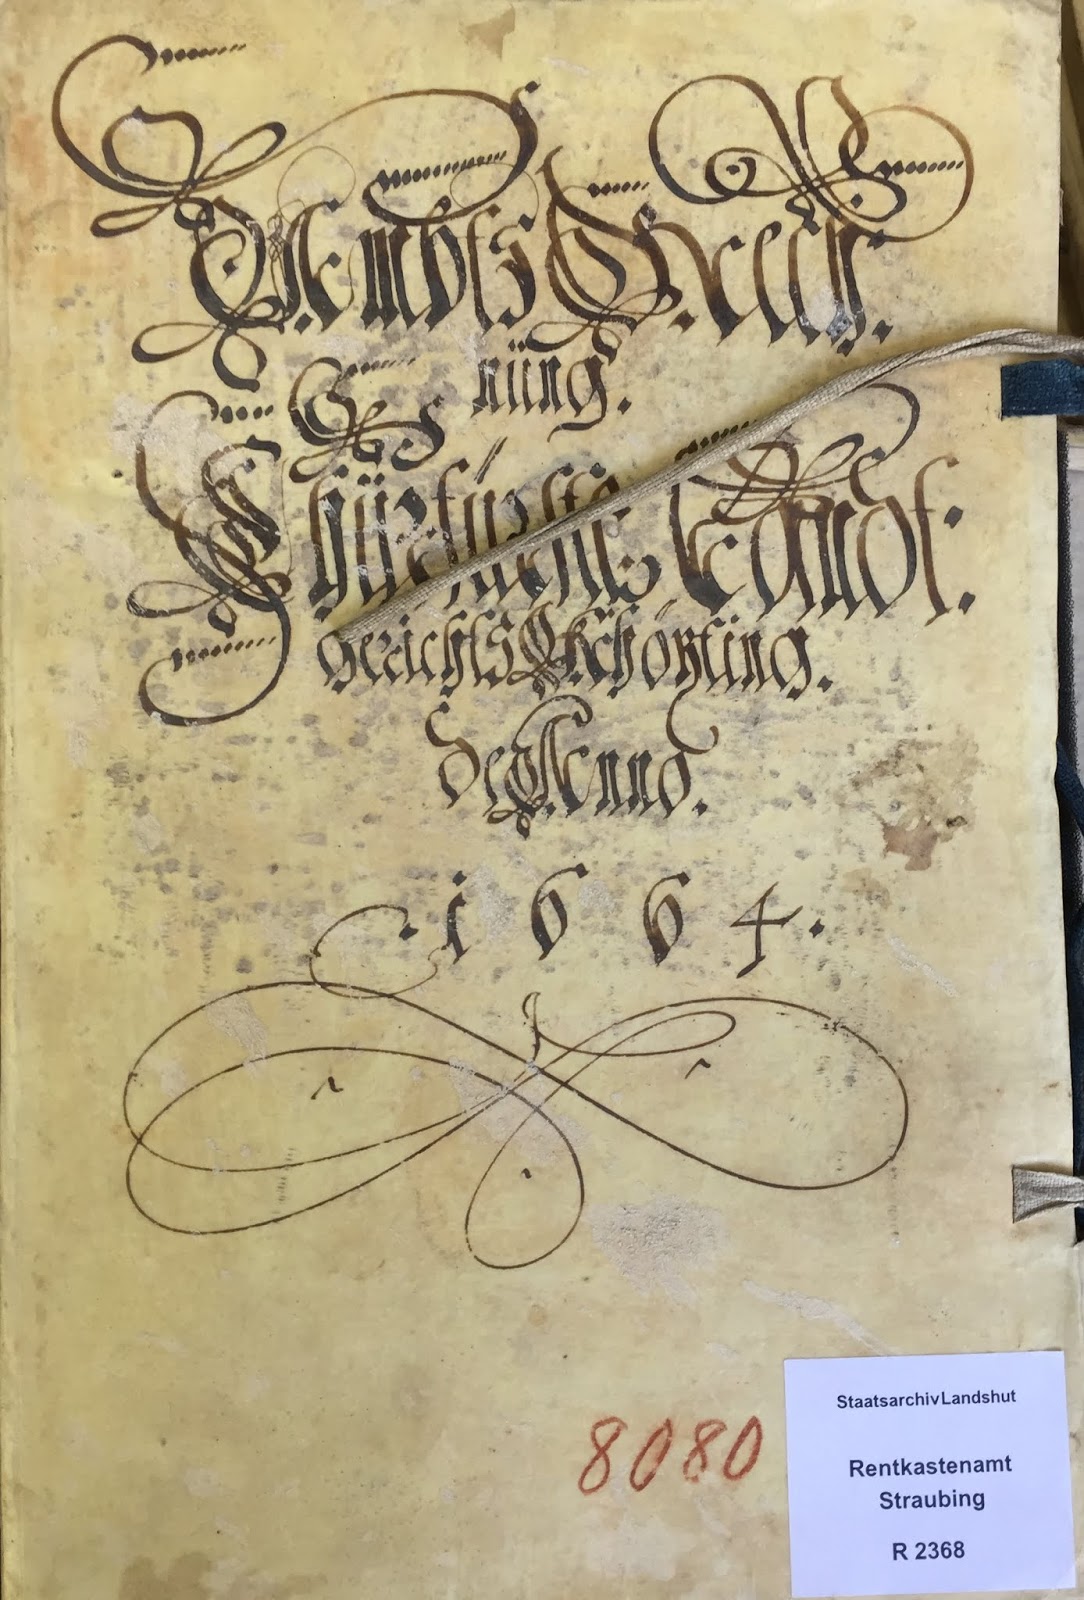 Ambts Rech:
nüng.
Chürfürstle: Landt:
gerichts Khözting.
De Anno.
1664.
8080
Staatsarchiv Landshut
Rentkastenamt
Straubing
R 2368